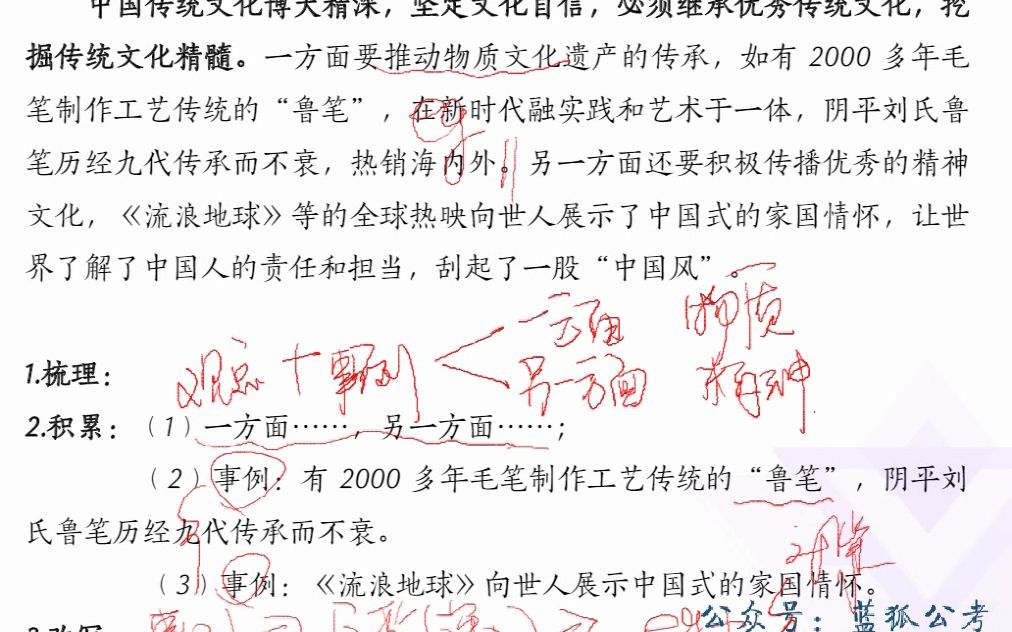 中国传统文化博大精深，坚定文化自信，必须继承优秀传统文化，挖
掘传统文化精髓。一方面要推动物质文化遗产的传承，如有 2000 多年毛
笔制作工艺传统的“鲁笔”，在新时代融实践和艺术于一体，阴平刘氏鲁
笔历经九代传承而不衰，热销海内外。另一方面还要积极传播优秀的精神
文化，《流浪地球》等的全球热映向世人展示了中国式的家国情怀，让世
界了解了中国人的责任和担当，刮起了一股“中国风”。
一方面 物质
1.梳理： 观点 + 事例 另一方面 精神
2.积累：（1）一方面……，另一方面……；
（2）事例：有 2000 多年毛笔制作工艺传统的“鲁笔”，阴平刘
氏鲁笔历经九代传承而不衰。
（3）事例：《流浪地球》向世人展示中国式的家国情怀。
公众号：蓝狐公考